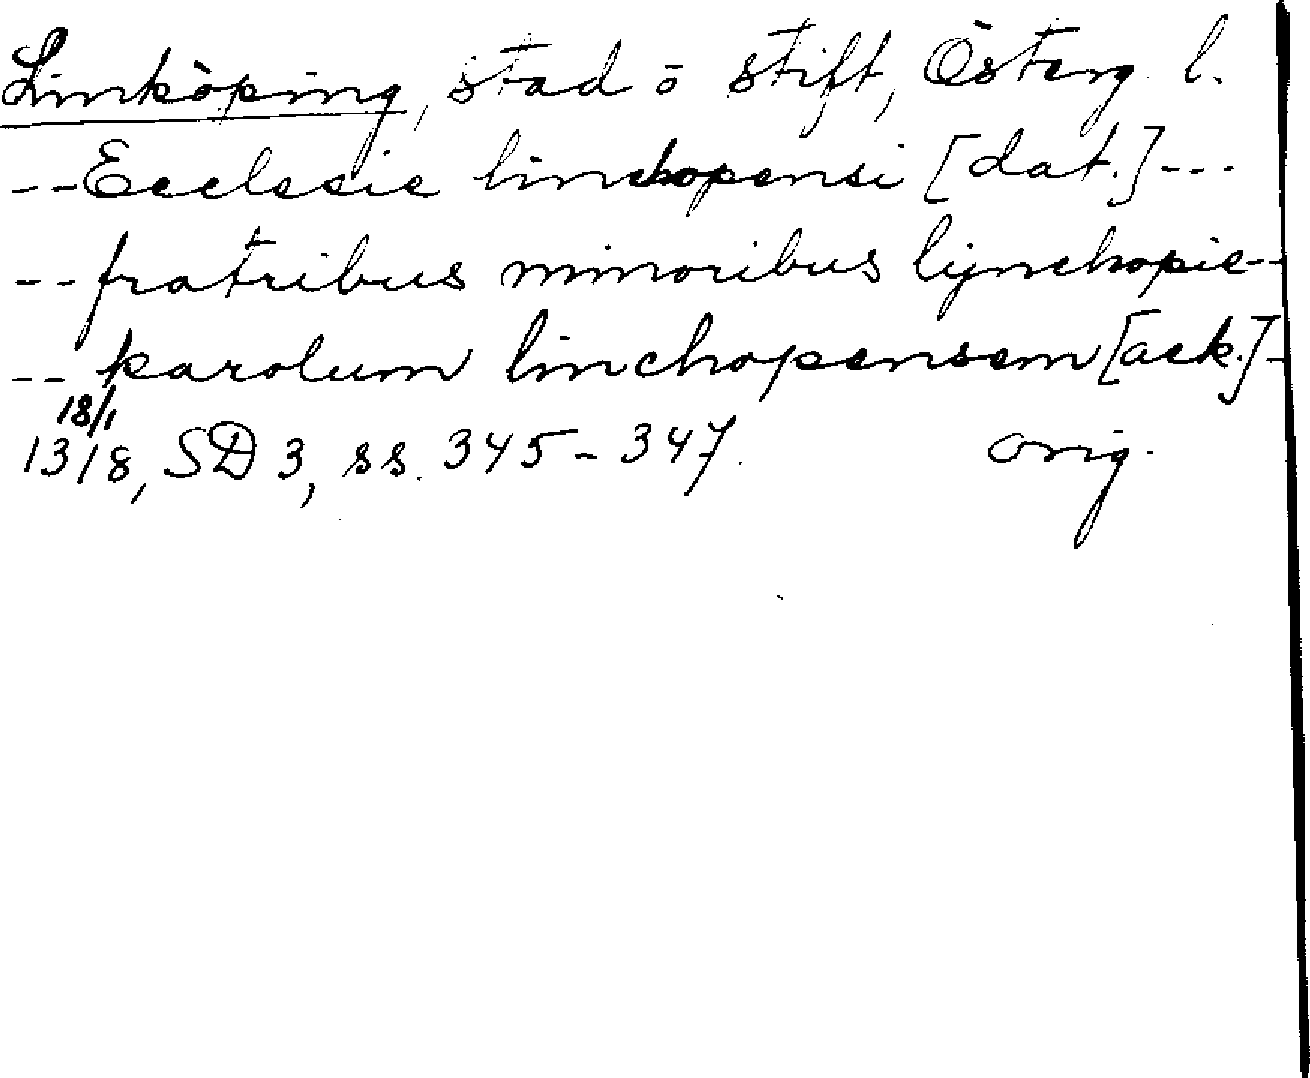 Linköping, stad o stift, Österg. l.
--Ecclesie linchopensi [dat.]---
--fratribus minoribus lijnchopie--
--karolum linchopensem [ack.]-
18/1
1318, SD 3, ss. 345-347. orig.